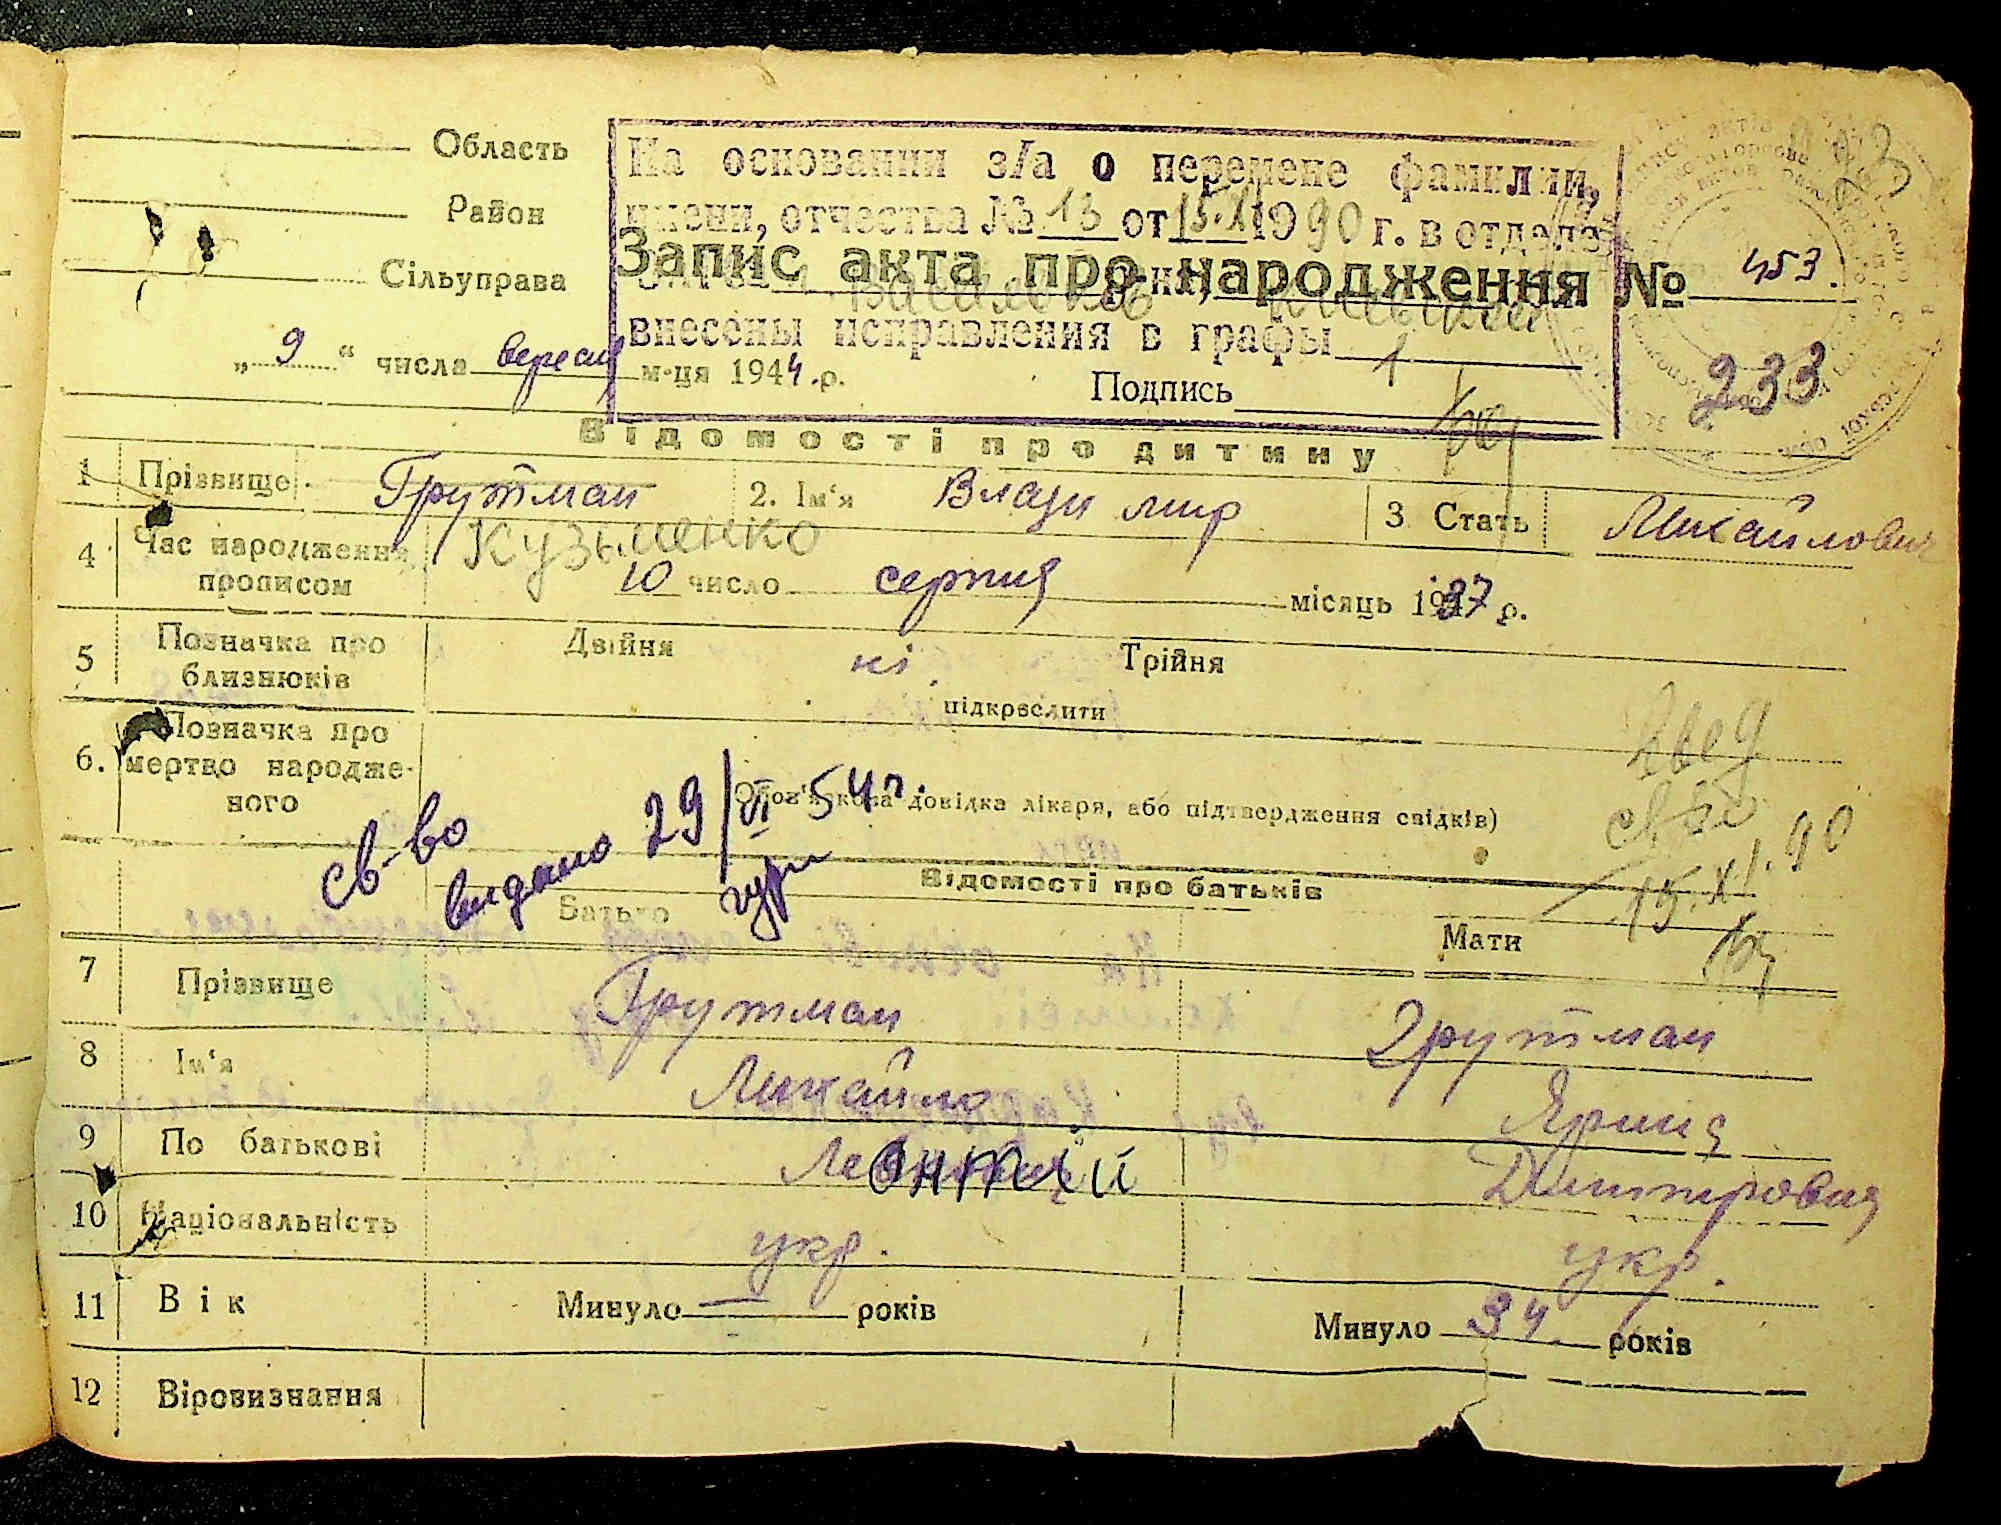 Область
На основании з/а о перемене фамилии,
Район
имени, отчества № 13 от 15.XI 1990 г. в отделе
Запис акта про народження № 453.
Сільуправа
внесены исправления в графы 1
„ 9 “ числа вересня м-ця 1944 р.
Подпись
233
Відомості про дитину
1 Прізвище Грутман 2. Ім'я Владимир 3 Стать Михайлович
Кузьменко
4 Час народження прописом 10 число серпня місяць 1937 р.
5 Позначка про близнюків Двійня ні Трійня
підкреслити
6. Позначка про мертво народженого
(Обов'язкова довідка лікаря, або підтвердження свідків)
св-во
видано 29/VI-54 г.
15.XI.90
Відомості про батьків
Батько Мати
7 Прізвище Грутман Грутман
8 Ім'я Михайло Ярина
9 По батькові Леонтій Дмитровна
10 Національність укр. укр.
11 Вік Минуло — років Минуло 34 років
12 Віровизнання